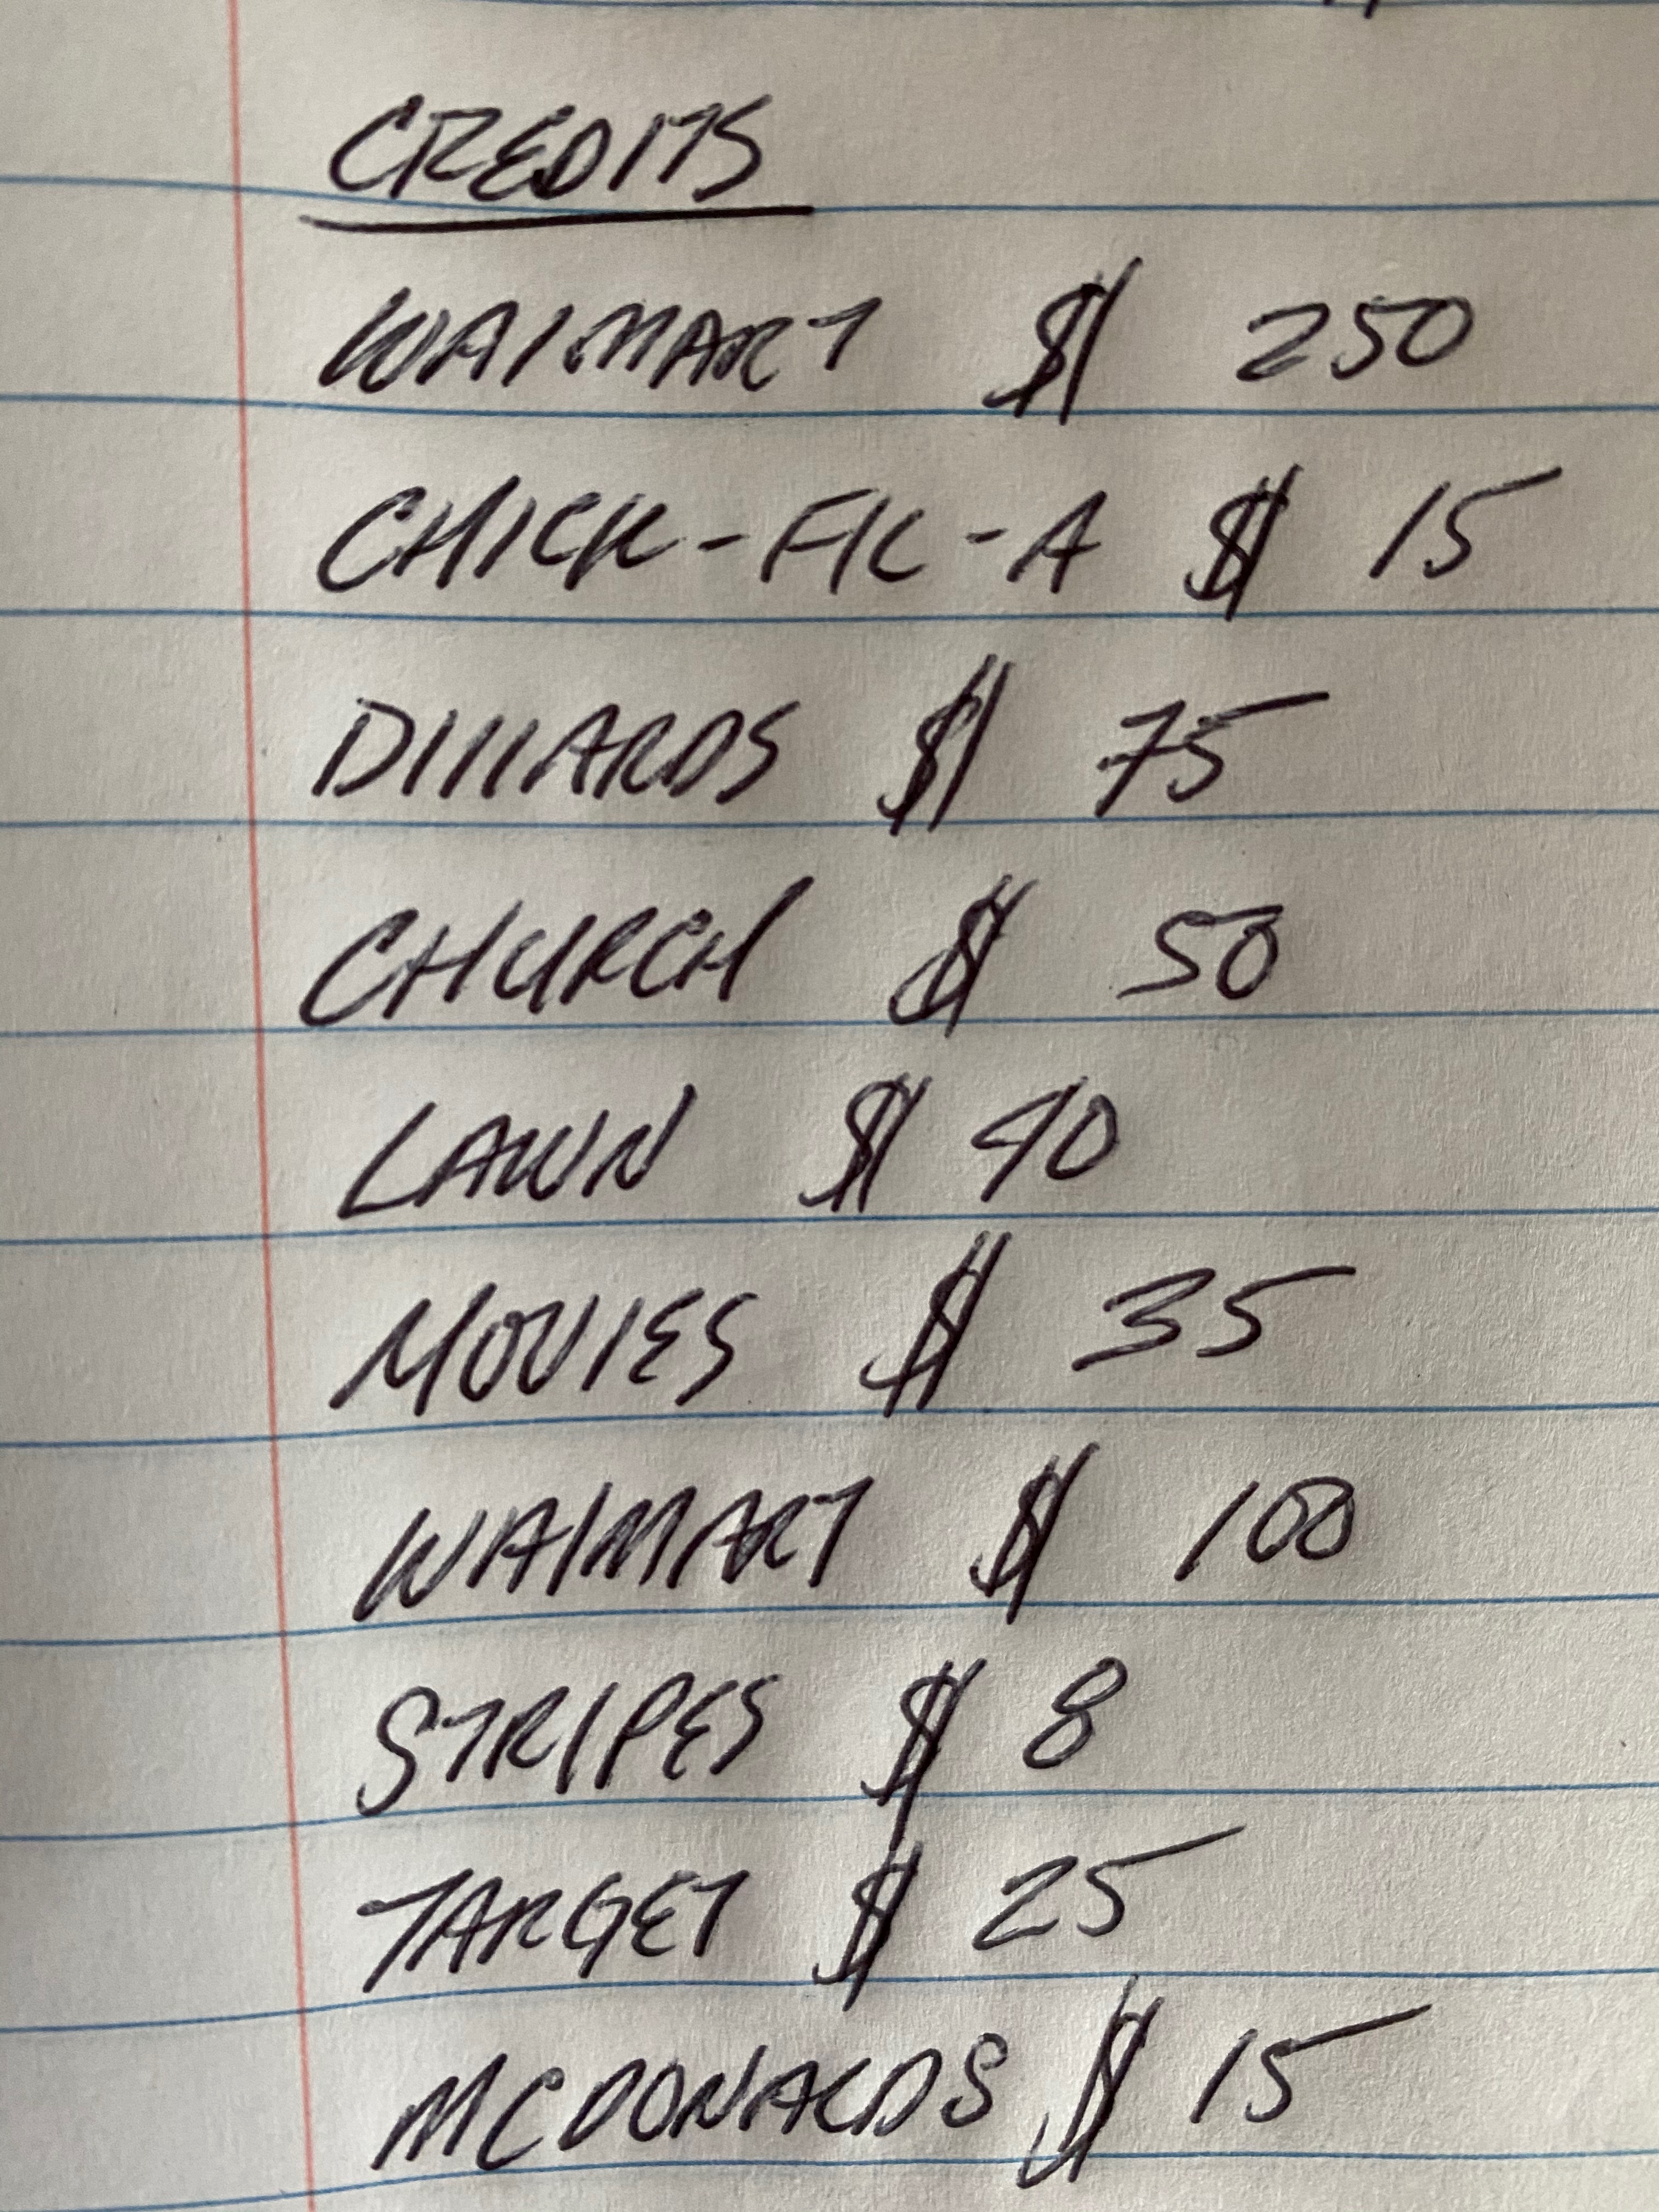 CREDITS
WALMART $ 250
CHICK-FIL-A $ 15
DILLARDS $ 75
CHURCH $ 50
LAWN $ 40
MOVIES $ 35
WALMART $ 100
STRIPES $ 8
TARGET $ 25
MCDONALDS $ 15